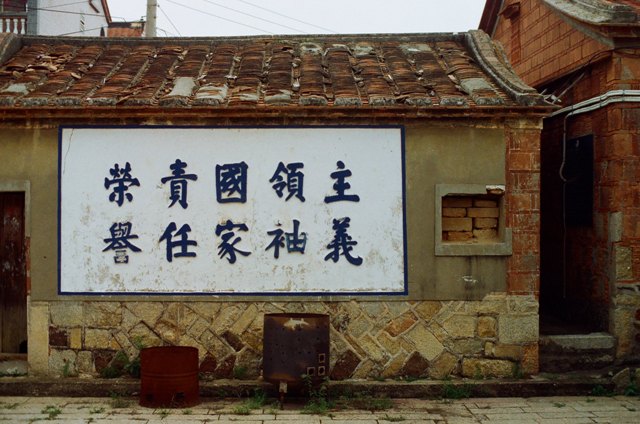 主義
領袖
國家
責任
榮譽